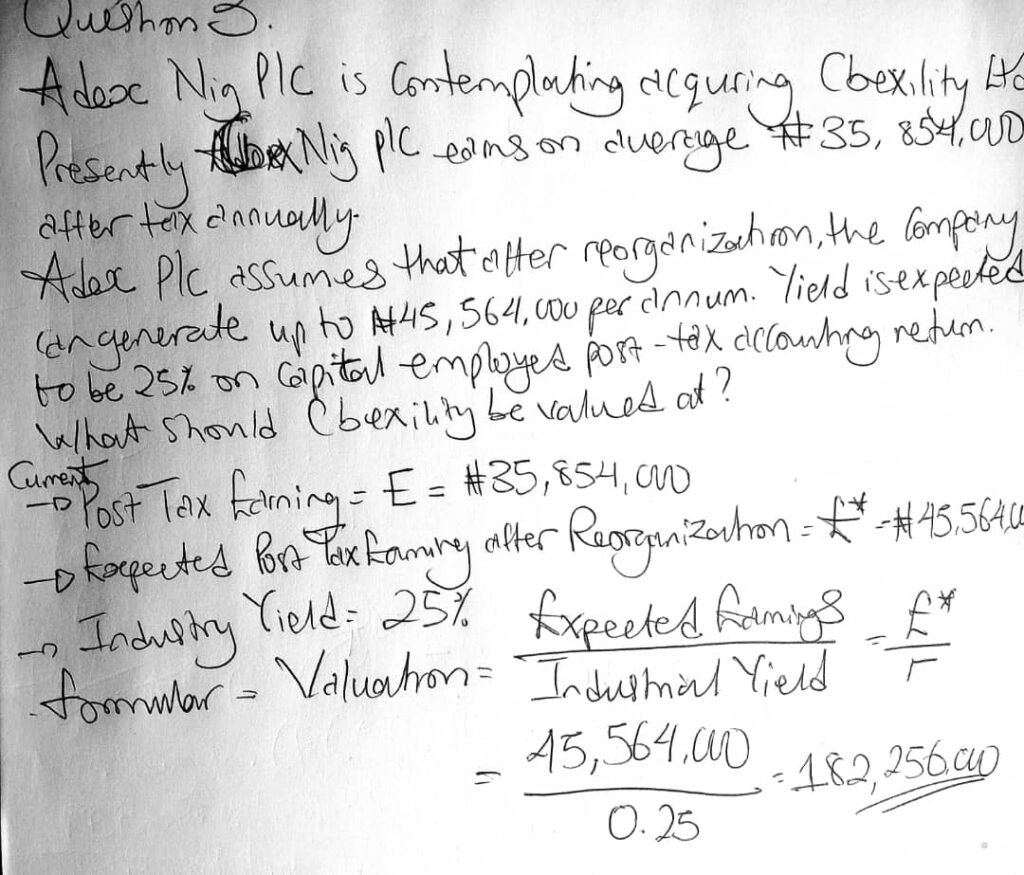 Question 3.
Adex Nig Plc is Contemplating acquring Cbexility Ltd
Presently Nig plc earns on average ₦35,854,000
after tax annually.
Adex Plc assumes that after reorganization, the Company
can generate up to ₦45,564,000 per annum. Yield is expected
to be 25% on Capital employed post-tax accounting return.
What should Cbexility be valued at?
Current
→ Post Tax Earning = E = ₦35,854,000
→ Expected Post Tax Earning after Reorganization = E* = ₦45,564,0
→ Industry Yield = 25%
formular = Valuation = Expected Earnings / Industrial Yield = E* / r
= 45,564,000 / 0.25 = 182,256,000